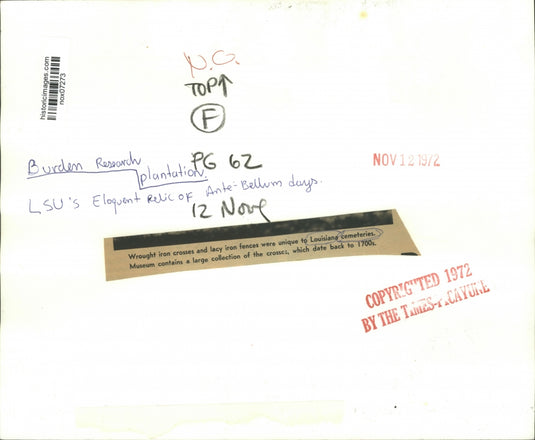 N.O.
TOP↑
F
historicimages.com
nox07273
Burden Research
plantation.
PG 62
NOV 12 1972
LSU's Eloquent Relic OF Ante-Bellum days.
12 Nove
Wrought iron crosses and lacy iron fences were unique to Louisiana cemeteries.
Museum contains a large collection of the crosses, which date back to 1700s.
COPYRIGHTED 1972
BY THE TIMES-PICAYUNE